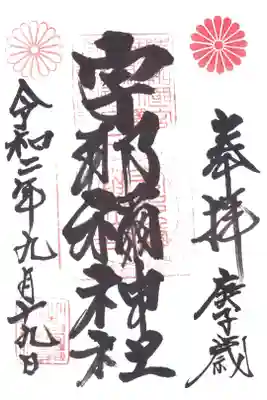 奉拝 庚子歳
宇那禰神社
令和二年九月十九日